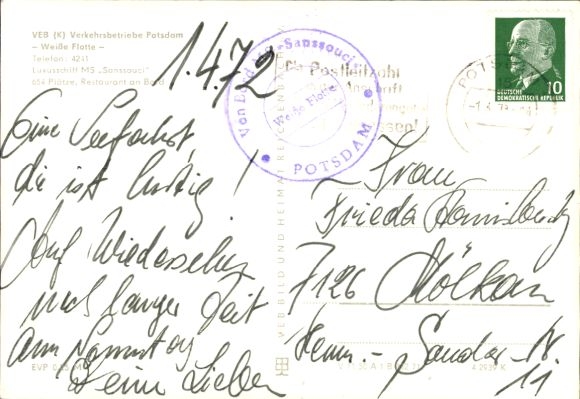 VEB (K) Verkehrsbetriebe Potsdam
– Weiße Flotte –
Telefon: 4241
Luxusschiff MS „Sanssouci"
654 Plätze, Restaurant an Bord
1.4.72
Von Bord MS Sanssouci
Weiße Flotte
POTSDAM
Postleitzahl
POTSDAM
DEUTSCHE
DEMOKRATISCHE REPUBLIK
10
Eine Seefahrt
die ist lustig!
Auf Wiedersehen
nach langer Zeit
am Sonntag
Deine Lieben
VEB BILD UND HEIMAT REICHENBACH
Frau
Frieda
7126 Mölkau
Herm.-Sander-Str.
11
EVP
A 2939 K